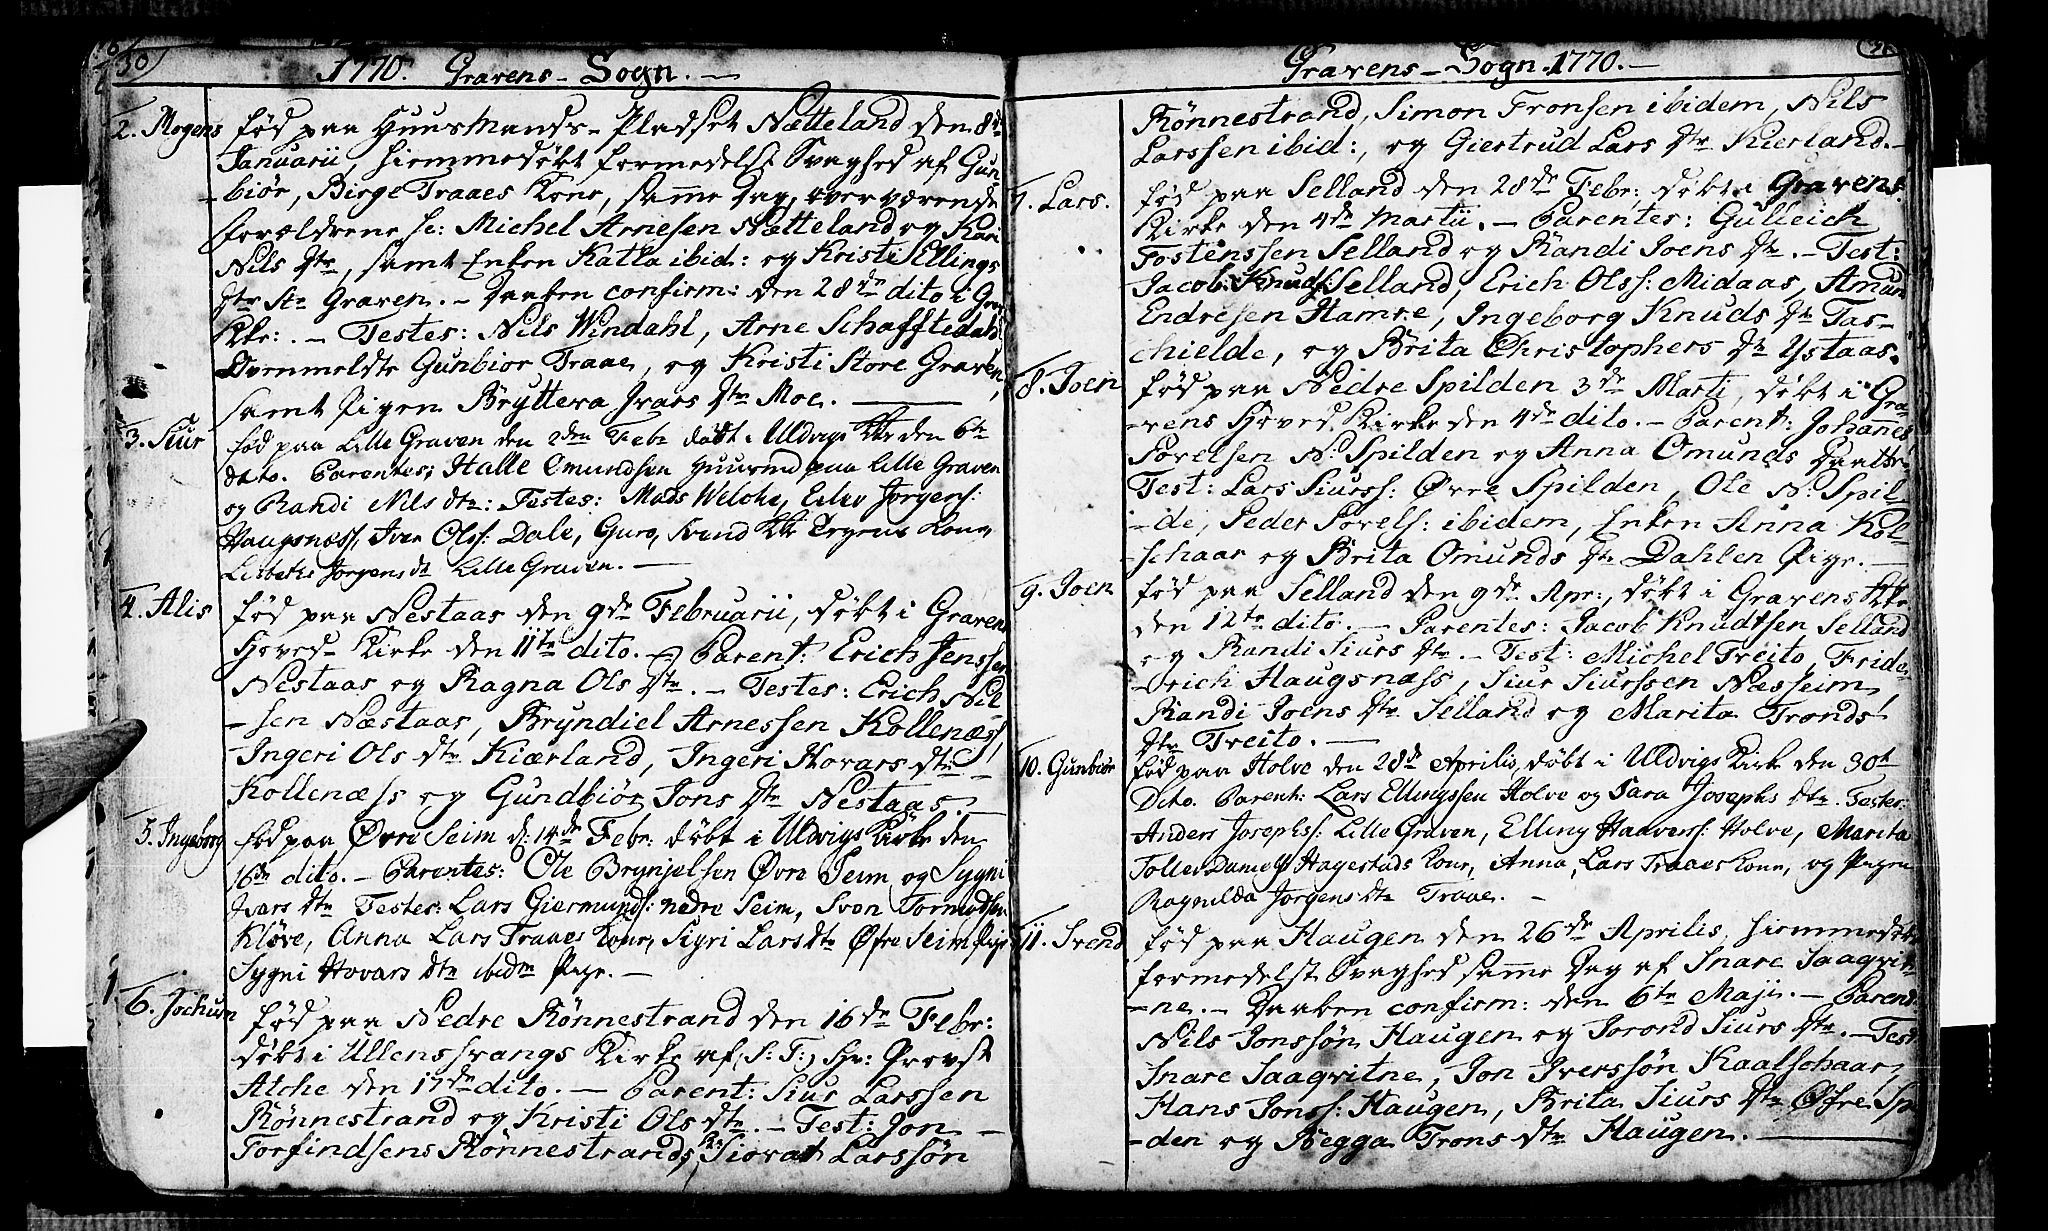 50
1770. Gravens-Sogn. —
2. Mogens
fød paa Huusmands-Pladset Nætteland den 8de
Januarii, hiemmedøbt formedelst Svaghed af Gun-
-biør, Birge Traaes Kone, samme Dag, overværende
forældrene sc: Michel Arnesen Nætteland og Kari
Nils dtr, samt Enken Katla ibid: og Kristi Ellings
dtr Str Graven. — Daaben confirm: den 28de dito i Grav
Kke: . — Testes: Nils Windahl, Arne Schafftedahl
Ovenmeldte Gunbior Traae, og Kristi Store Graven,
samt Pigen Bryttera Ivars dtr Moe. —
3. Siur
fød paa Lille Graven den 2den Febr døbt i Uldvigs Kke den 6te
dito. Parentes; Halle Omundsen Huusmd paa Lille Graven
og Randi Nils dtr: Testes: Mads Welche, Eilev Jørgens:
Haugsnæss, Iver Olss: Dale, Guro, Svend Kke Kone,
Lisbethe Jørgens dtr Lille Graven. —
4. Alis
fød paa Nestaas den 9de Februarii, døbt i Gravens
Hoved-Kirke den 11te dito. — Parent: Erich Jenssen
Nestaas og Ragna Ols dtr. — Testes: Erich Nil-
-sen Næstaas, Bryndiel Arnessen Kollenæss,
Ingeri Ols dtr Kiærland, Ingeri Hovars dtr
Kollenæss og Gundbiør Jons dtr Nestaas. —
5. Ingeborg
fød paa Øvre Seim d: 14de Febr: døbt i Uldvigs Kirke den
16de dito. — Parentes: Ole Brynjelsen Øvre Seim og Sygni
Ivars dtr Testes: Lars Giermunds: nedre Seim, Sven Tormodsen
Kløve, Anna Lars Traaes Kone, Sigri Lars dtr Øfre Seim pige
Sygni Hovars dtr ibidm Pige. —
6. Jochum
fød paa Nedre Rönnestrand den 16de Febr:
døbt i Ullensvangs Kirke af (S:T:) Hr: Provst
Atche den 17de dito. — Parent: Siur Larssen
Rönnestrand og Kristi Ols dtr. — Test: Jon —
Torfindsens Rönnestrands, Ke Siovat Larssön
Gravens-Sogn. 1770. —
Rönnestrand, Simon Tronsen ibidem, Nils
Larssen ibid:, og Giertrud Lars dtr Kierland. —
7. Lars.
fød paa Selland den 28de Febr: døbt i Gravens
Kirke den 4de Martii. — Parentes: Gulleich
Tostenssen Selland og Randi Joens dtr. — Test:
Jacob Knuds: Selland, Erich Olss: Midaas, Amund
Endresen Hamre, Ingeborg Knuds dtr Tas-
chielde, og Brita Christophers dtr Ystaas.
8. Joen
fød paa Nedre Spilden 3de Marti, døbt i Gra-
-vens Hoved Kirke den 4de dito. — Parent: Johannes
Povelsen N: Spilden og Anna Omunds Daatter
Test: Lars Siurss: Øvre Spilden, Ole N: Spil-
-de, Peder Povels: ibidem, Enken Anna Kol-
-schaar og Brita Omunds dtr Dahlen Pige. —
9. Joen
fød paa Selland den 9de Apr:, døbt i Gravens Kke
den 12te dito. — Parentes: Jacob Knudtsen Selland
og Randi Siurs dtr. — Test: Michel Treito, Fride-
-rich Haugsnæss, Siur Siurssen Næsseim
Randi Joens dtr Selland og Marita Tronds
dtr Treito. —
10. Gunbiør
fød paa Holve den 28de Aprilis, døbt i Uldvigs Kirke den 30te
Dito. Parent: Lars Ellingssen Holve og Sara Josephs dtr. Testes:
Anders Josephss: Lille Graven, Elling Haavers: Holve, Marita
Tollev Hagestads Kone, Anna, Lars Traaes Kone, og Pigen
Ragnilda Jørgens dtr Traae. —
11. Svend
fød paa Haugen den 26de Aprilis, hiemmedøbt
formedelst Svaghed samme Dag af Snare Saaqvit-
-ne. — Daaben confirm: den 6te Maji. — Parent:
Nils Jonssön Haugen og Jorond Siurs dtr. — Test:
Snare Saaqvitne, Jon Iverssön Kaalschaar,
Hans Jonss: Haugen, Brita Siurs dtr Øfre Sp-
-den og Begga Trons dtr Haugen. —